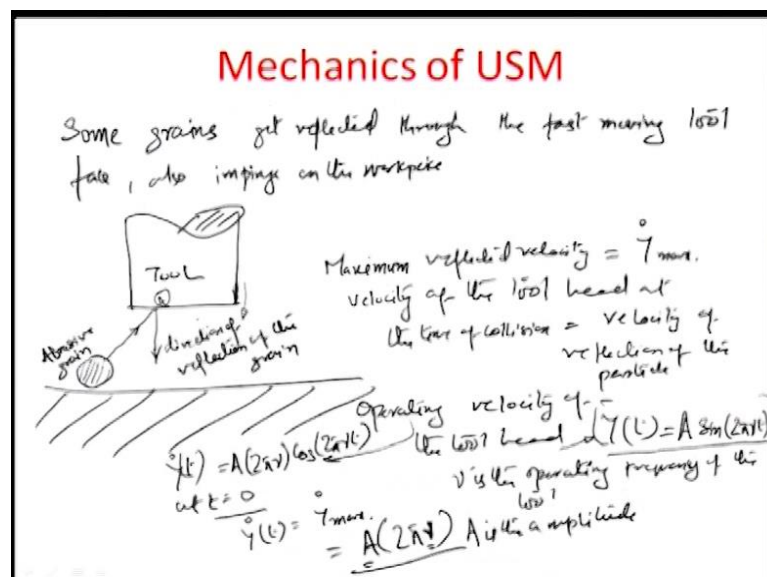 Mechanics of USM
Some grains get reflected through the fast moving tool
face, also impinge on the workpiece
TOOL
Abrasive
grain
direction of
reflection of the
grain
Maximum reflected velocity = Ẏmax.
velocity of the tool head at
the time of collision = velocity of
reflection of the
particle
Operating velocity of
the tool head Y(t) = A sin(2πνt)
ν is the operating frequency of the
tool
Ẏ(t) = A(2πν) cos(2πνt)
at t = 0
Ẏ(t) = Ẏmax.
= A(2πν) A is the amplitude